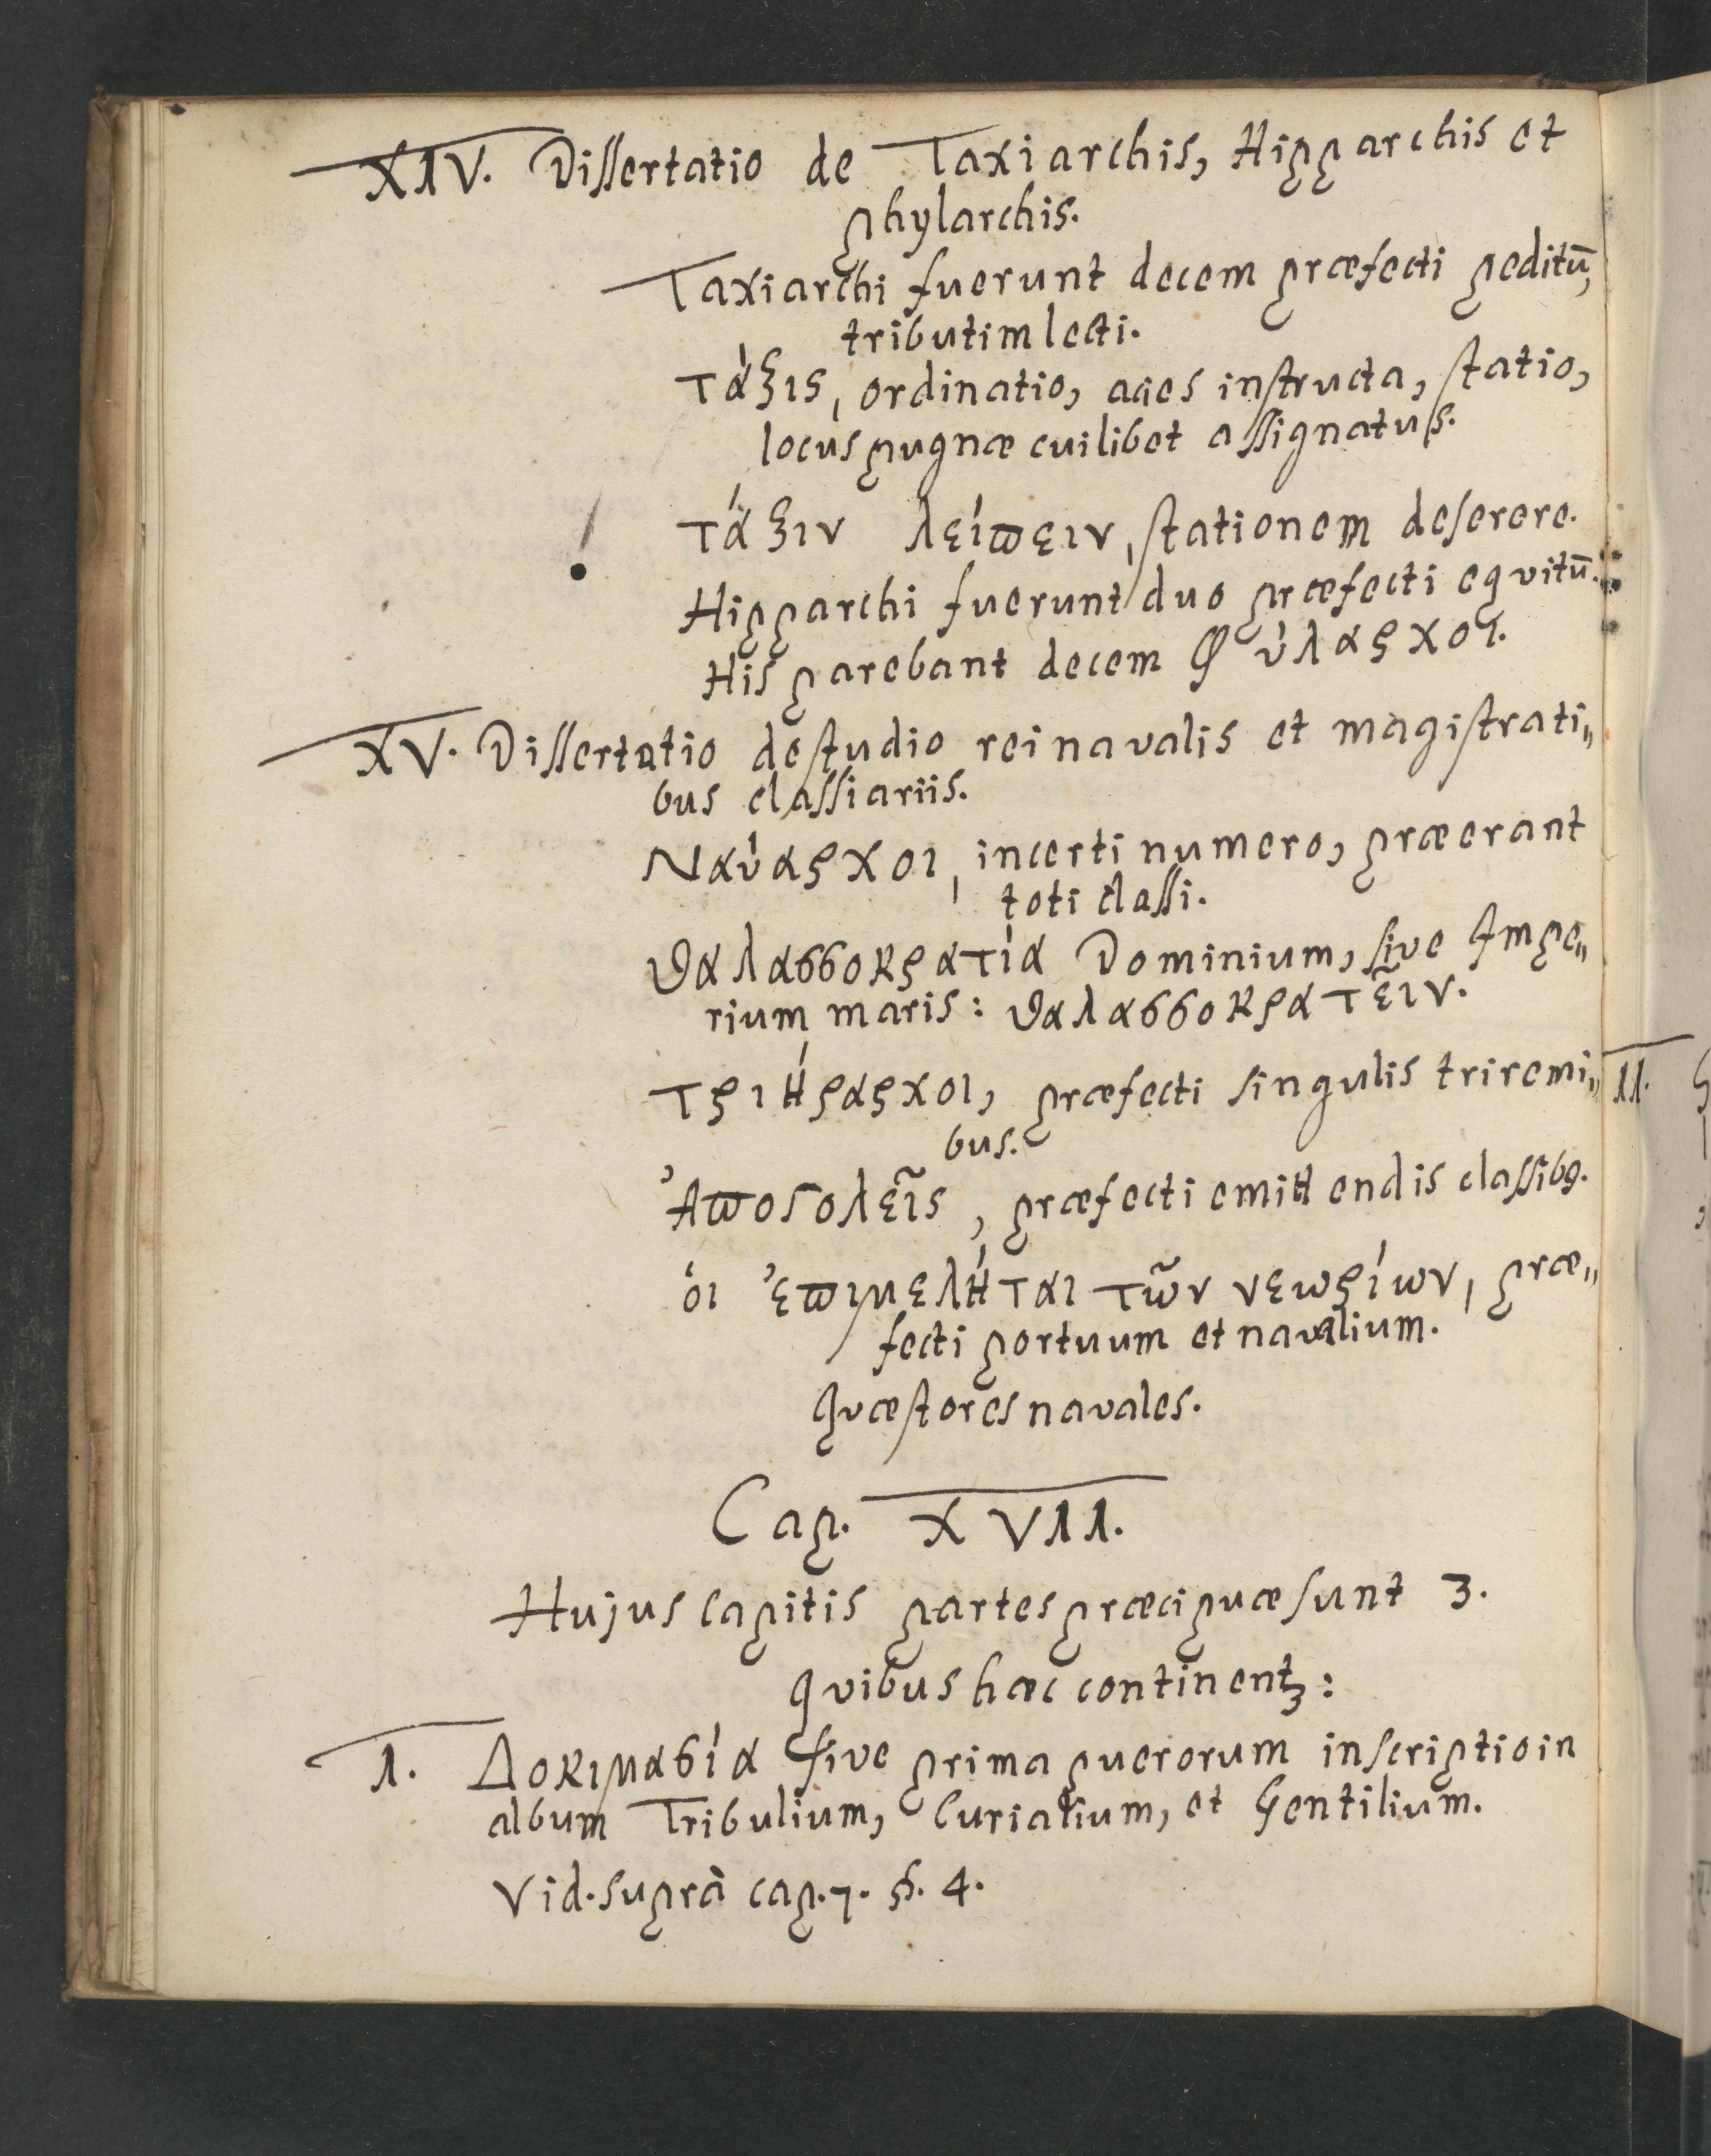 XIV. Dissertatio de Taxiarchis, Hipparchis et
phylarchis.
Taxiarchi fuerunt decem præfecti peditū,
tributim lecti.
τάξις, ordinatio, acies instructa, statio,
locus pugnæ cuilibet assignatus.
! τάξιν λείπειν, stationem deserere.
Hipparchi fuerunt duo præfecti eqvitū.
His parebant decem Φύλαρχοι.
XV. Dissertatio de studio rei navalis et magistrati„
bus classiariis.
Ναύαρχοι, incerti numero, præerant
toti classi.
θαλασσοκρατία Dominium, sive Impe„
rium maris: θαλασσοκρατεῖν.
τριήραρχοι, præfecti singulis triremi„
bus.
Ἀποϛολεῖς, præfecti emittendis classibꝰ.
ὁι ἐπιμελήται τῶν νεωρίων, præ„
fecti portuum et navalium.
Qvæstores navales.
Cap. XVII.
Hujus Capitis partes præcipuæ sunt 3.
qvibus hæc continentꝫ:
I. Δοκιμασία sive prima puerorum inscriptio in
album Tribulium, Curialium, et Gentilium.
Vid. suprà cap. 7. §. 4.
II.